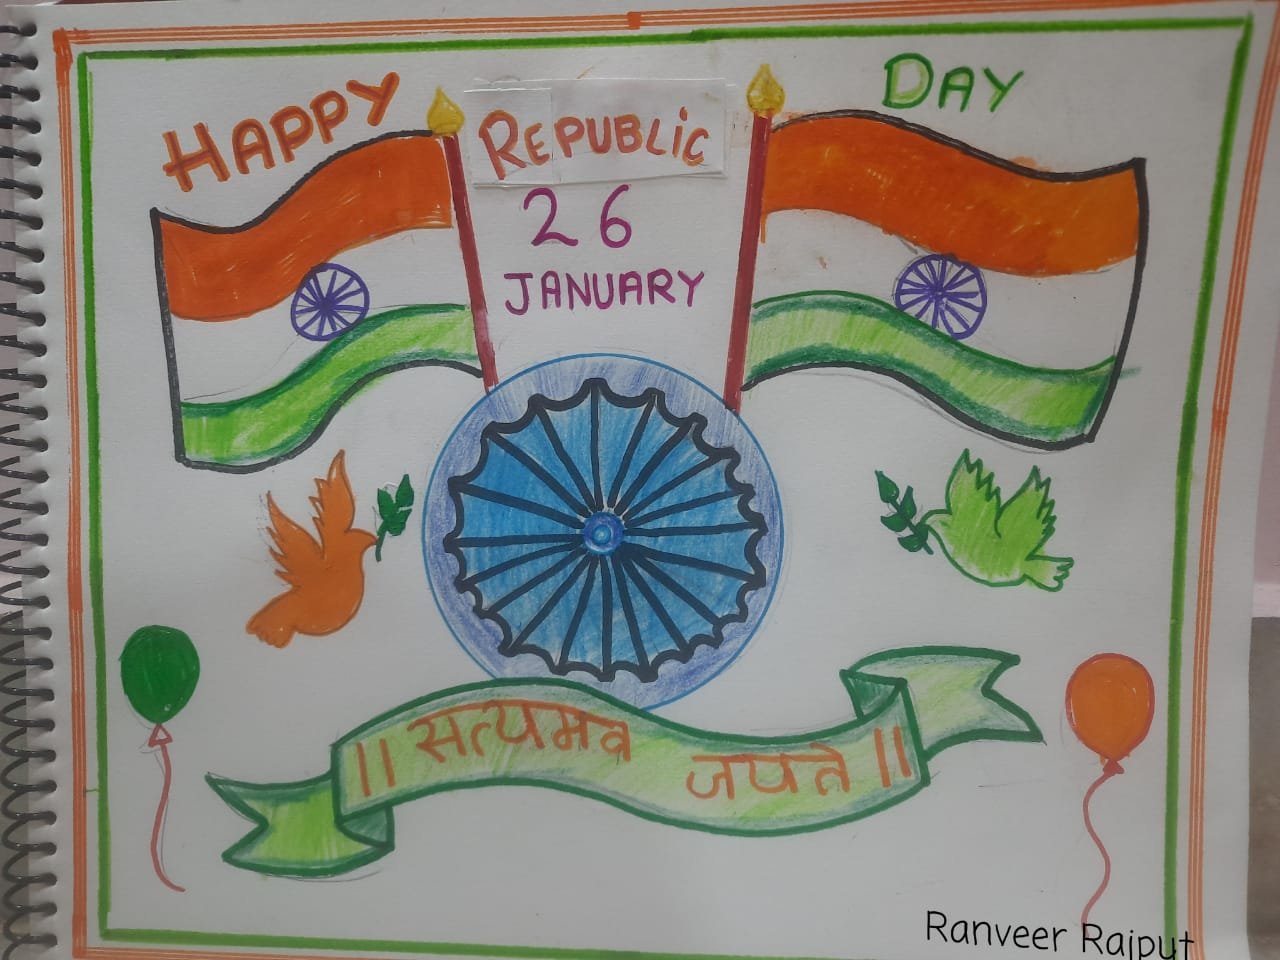 HAPPY REPUBLIC DAY
26
JANUARY
|| सत्यमेव जयते ||
Ranveer Rajput